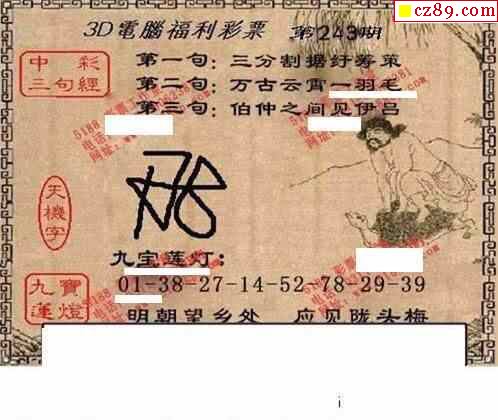 cz89.com
3D電腦福利彩票 第243期
中彩
三句經
第一句：三分割据纡筹策
第二句：万古云霄一羽毛
第三句：伯仲之间见伊吕
天機字
九宝莲灯：
九寶
蓮燈
01-38-27-14-52-78-29-39
明朝望乡处 应见陇头梅
i